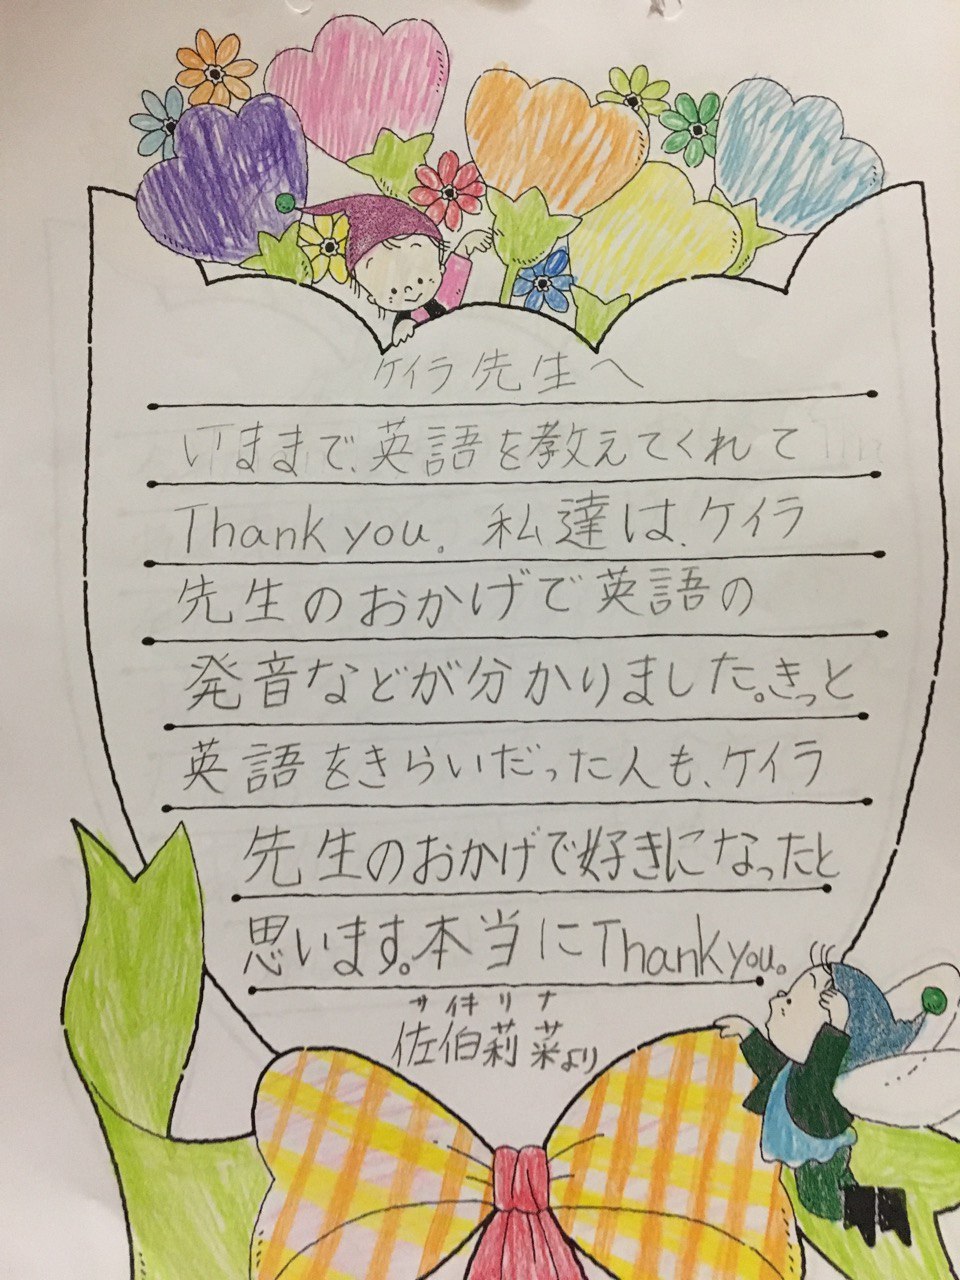 ケイラ先生へ
いままで、英語を教えてくれて
Thank you。私達は、ケイラ
先生のおかげで英語の
発音などが分かりました。きっと
英語をきらいだった人も、ケイラ
先生のおかげで好きになったと
思います。本当にThank you。
サイキリナ
佐伯莉菜より